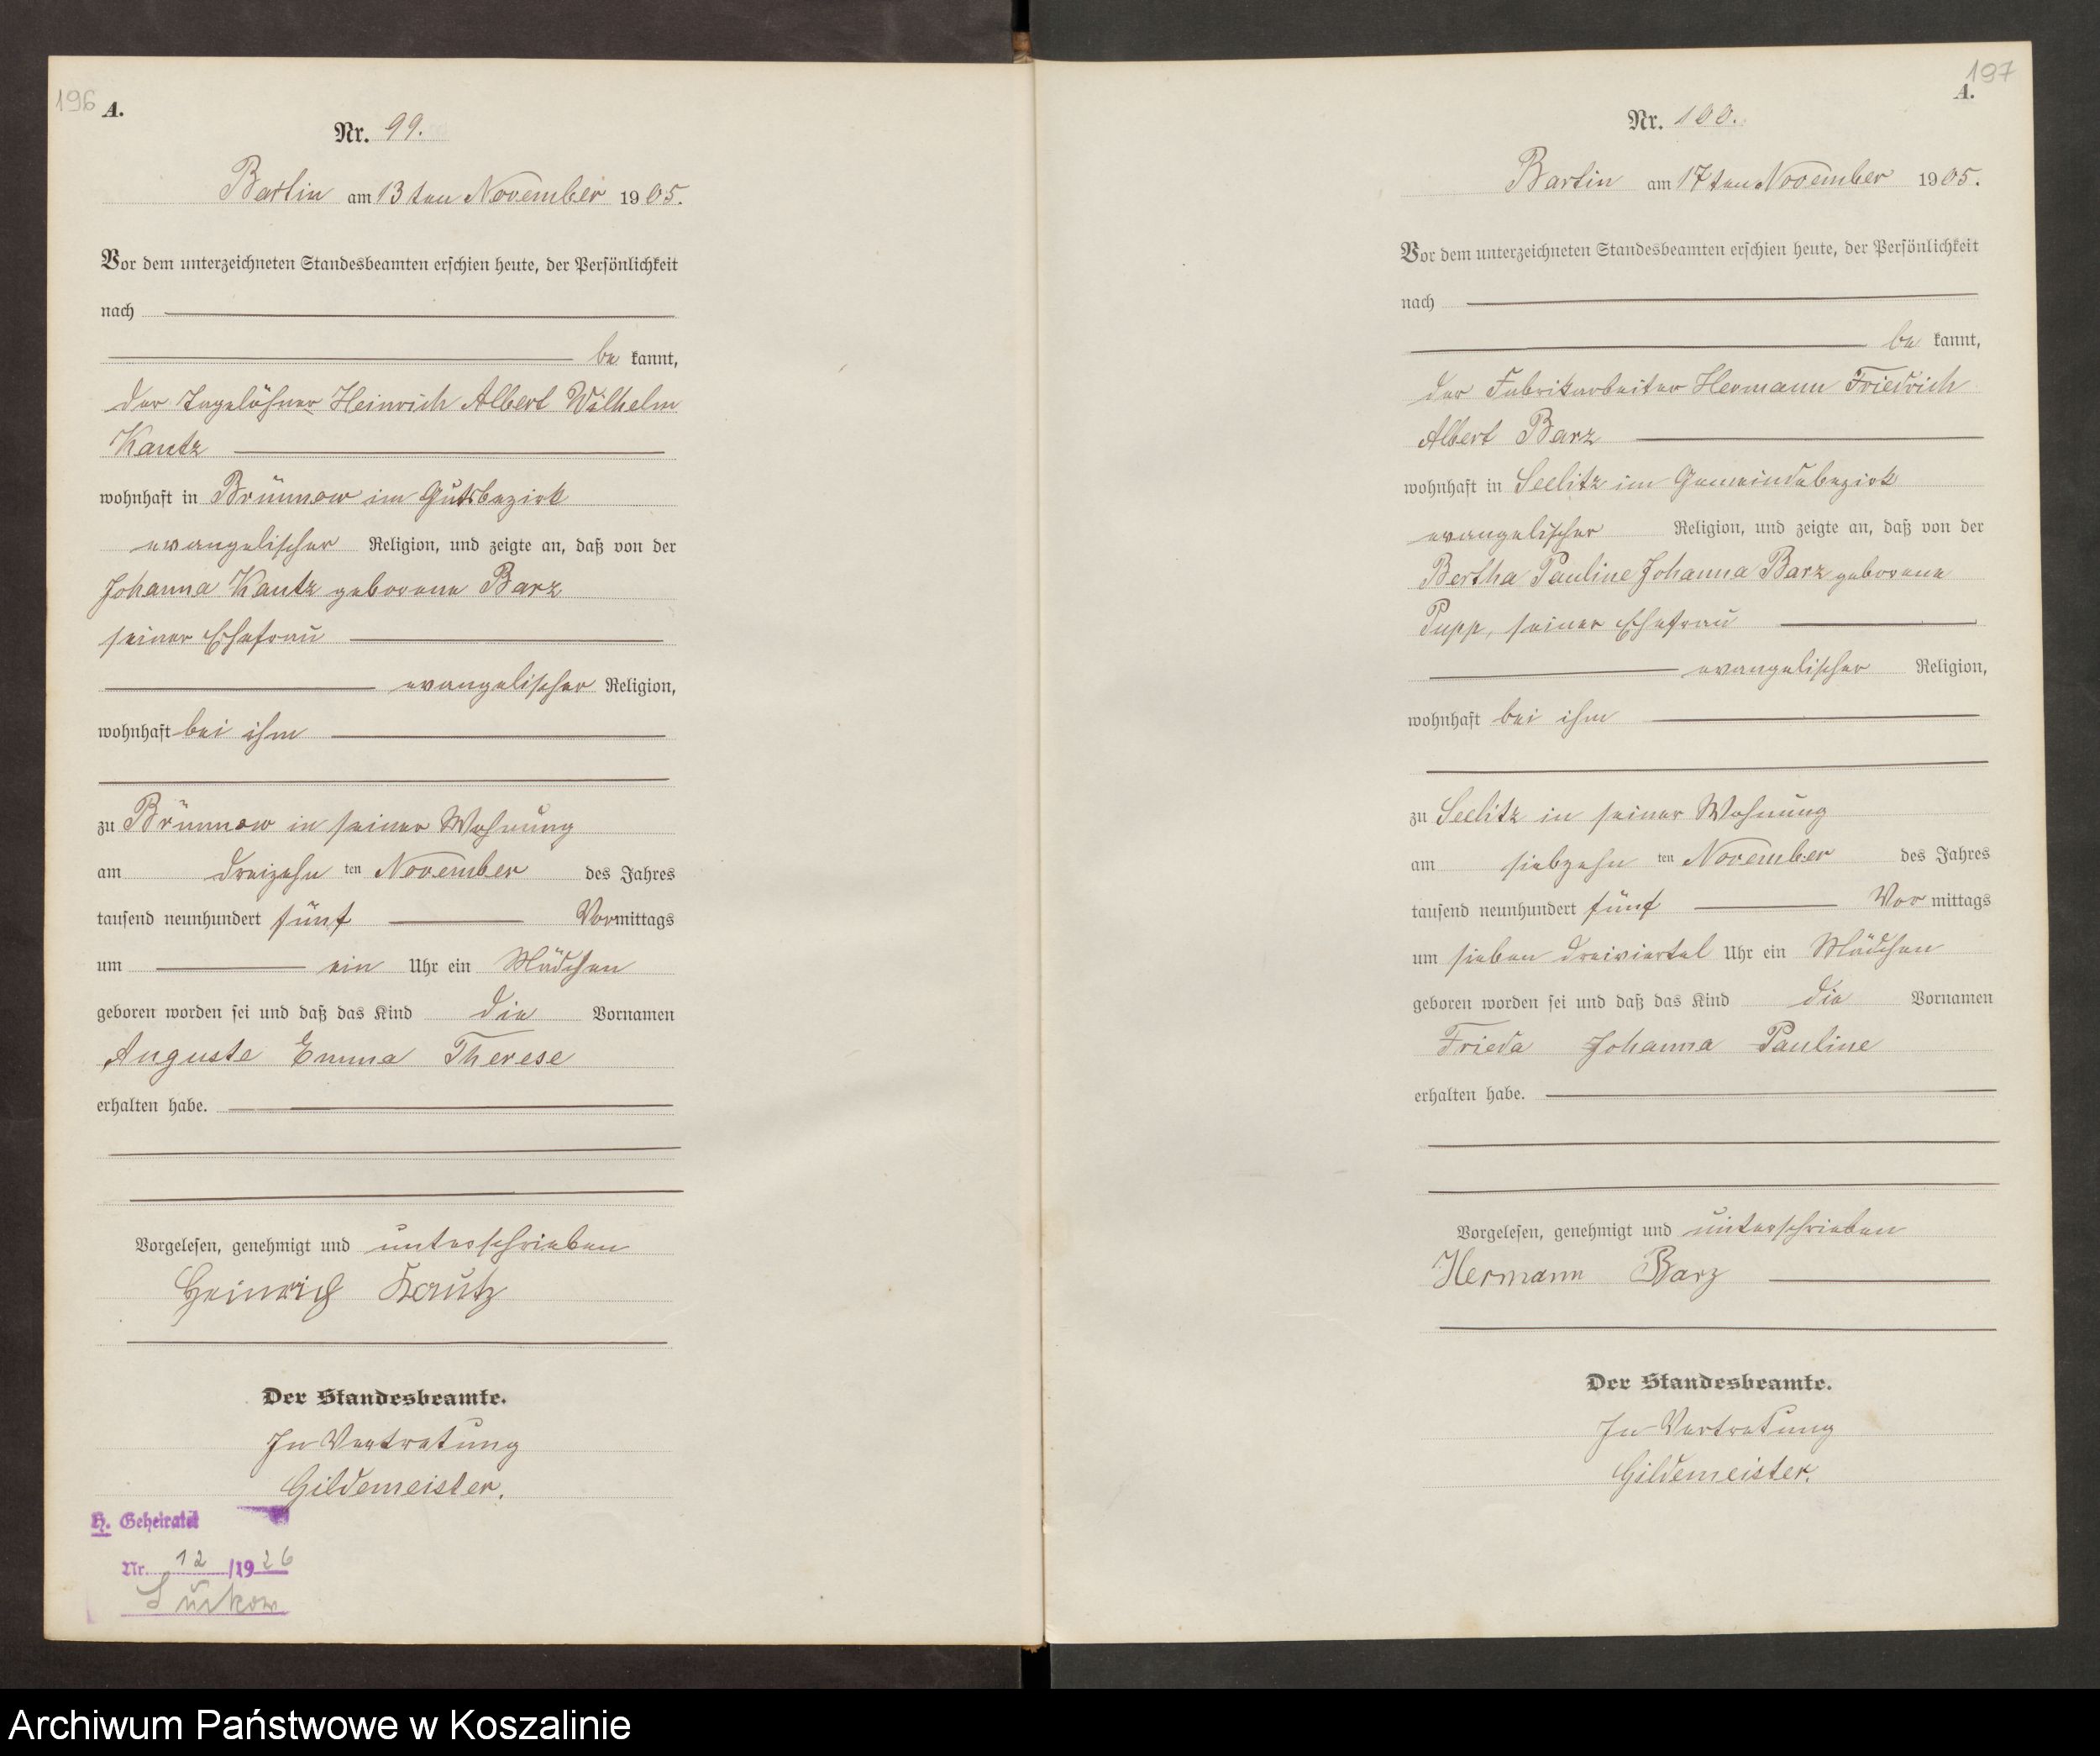 196
A.
Nr. 99.
Bartin am 13 ten November 1905.
Vor dem unterzeichneten Standesbeamten erschien heute, der Persönlichkeit
nach
be kannt,
der Tagelöhner Heinrich Albert Wilhelm
Kautz
wohnhaft in Brünnow im Gutsbezirk
evangelischer Religion, und zeigte an, daß von der
Johanna Kautz geborene Barz
seiner Ehefrau
evangelischer Religion,
wohnhaft bei ihm
zu Brünnow in seiner Wohnung
am dreizehn ten November des Jahres
tausend neunhundert fünf Vormittags
um ein Uhr ein Mädchen
geboren worden sei und daß das Kind die Vornamen
Auguste Emma Therese
erhalten habe.
Vorgelesen, genehmigt und unterschrieben
Heinrich Kautz
Der Standesbeamte.
In Vertretung
Gildemeister.
H. Geheiratet
Nr. 12 /1926
197
A.
Nr. 100.
Bartin am 17 ten November 1905.
Vor dem unterzeichneten Standesbeamten erschien heute, der Persönlichkeit
nach
be kannt,
der Fabrikarbeiter Hermann Friedrich
Albert Barz
wohnhaft in Seelitz im Gemeindebezirk
evangelischer Religion, und zeigte an, daß von der
Bertha Pauline Johanna Barz geborene
Pupp, seiner Ehefrau
evangelischer Religion,
wohnhaft bei ihm
zu Seelitz in seiner Wohnung
am siebzehn ten November des Jahres
tausend neunhundert fünf Vor mittags
um sieben dreiviertel Uhr ein Mädchen
geboren worden sei und daß das Kind die Vornamen
Frieda Johanna Pauline
erhalten habe.
Vorgelesen, genehmigt und unterschrieben
Hermann Barz
Der Standesbeamte.
In Vertretung
Gildemeister.
Archiwum Państwowe w Koszalinie